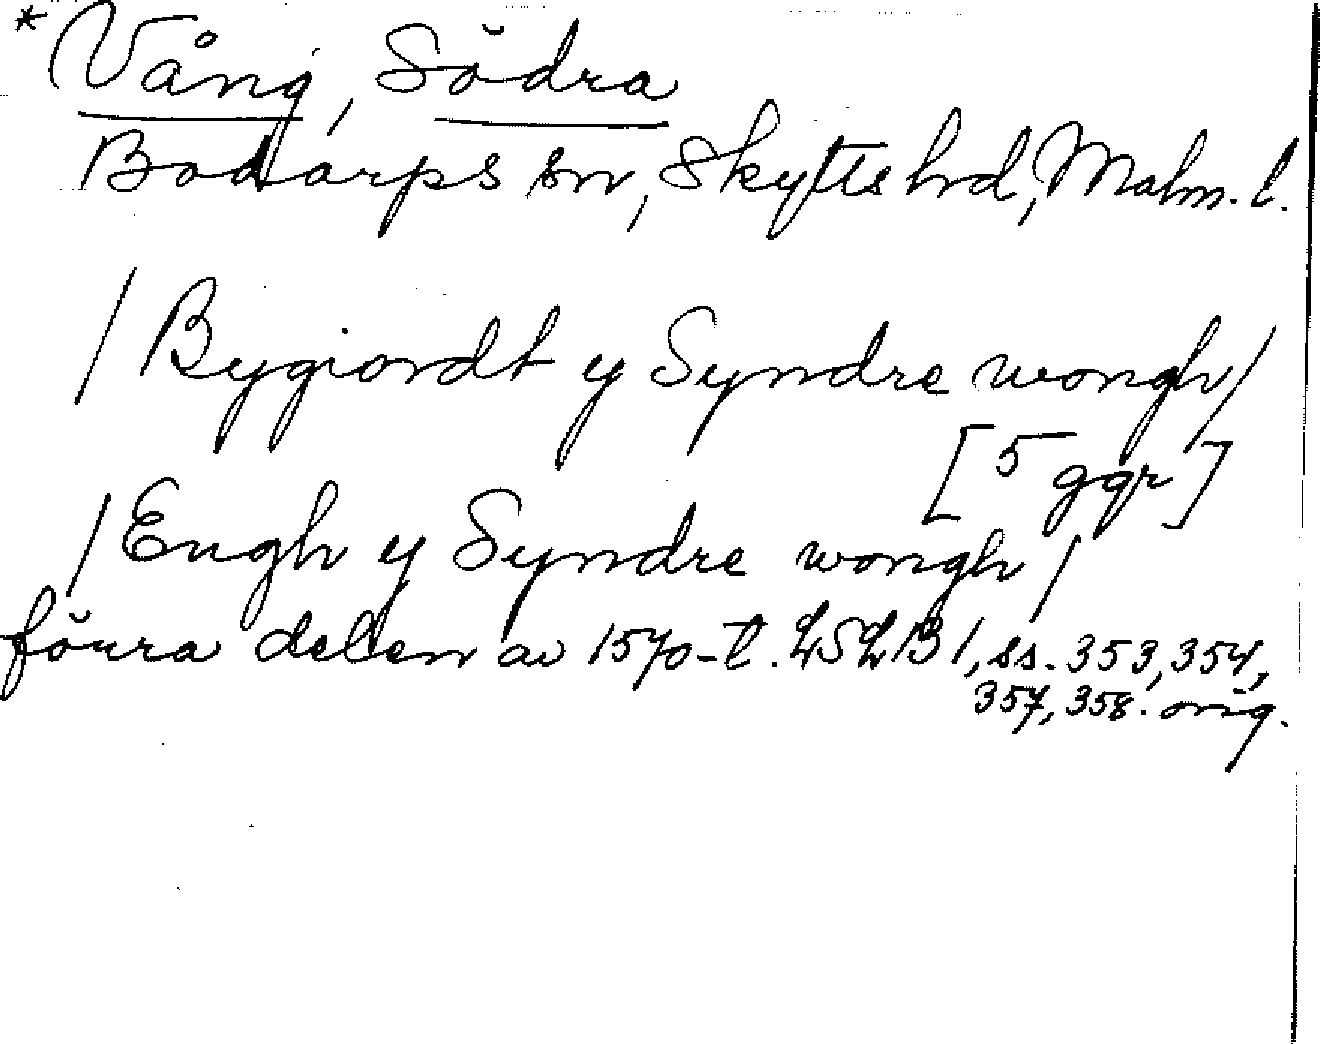 * Vång, Södra
Bodarps sn, Skytts hrd, Malm. l.
/ Bygiordt y Syndre wongh /
[5 ggr]
/ Engh y Syndre wongh /
förra delen av 1570-t. LSLB1, ss. 353, 354,
357, 358. orig.